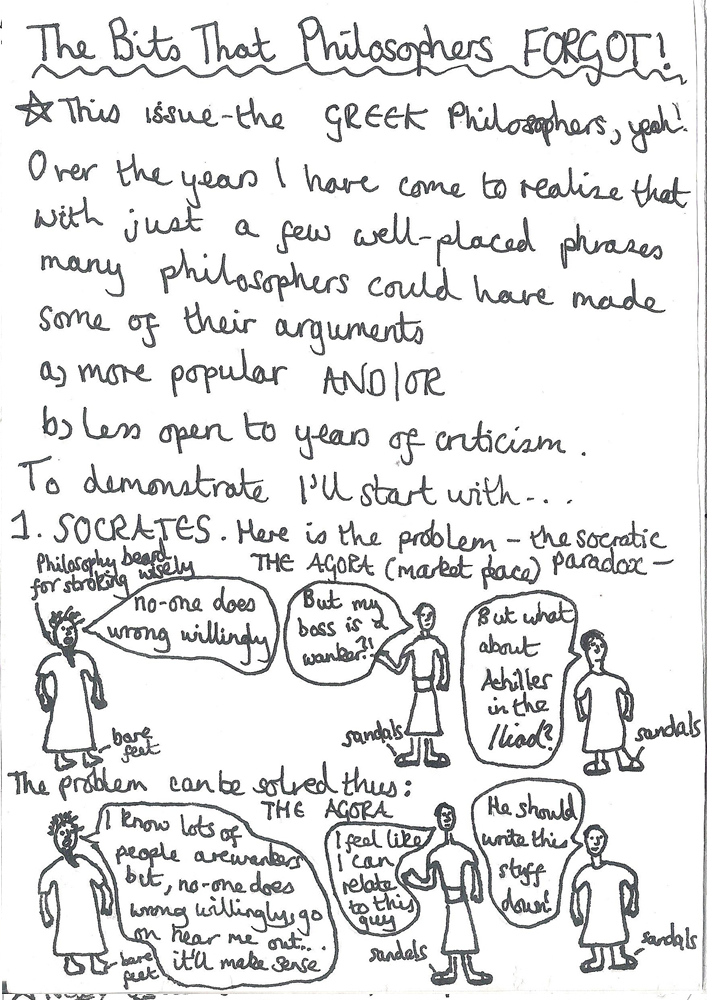 The Bits That Philosophers FORGOT!
☆ This issue-the GREEK Philosophers, yeah!
Over the years I have come to realize that
with just a few well-placed phrases
many philosophers could have made
some of their arguments
a) more popular AND/OR
b) less open to years of criticism.
To demonstrate I'll start with...
1. SOCRATES. Here is the problem - the socratic
paradox -
THE AGORA (market place)
Philosophy beard
for stroking wisely
no-one does
wrong willingly
bare
feet
But my
boss is a
wanker?!
sandals
But what
about
Achilles
in the
Iliad?
sandals
The problem can be solved thus:
THE AGORA
I know lots of
people are wankers
but, no-one does
wrong willingly, go
on hear me out...
it'll make sense
bare
feet
I feel like
I can
relate
to this
guy
sandals
He should
write this
stuff
down!
sandals